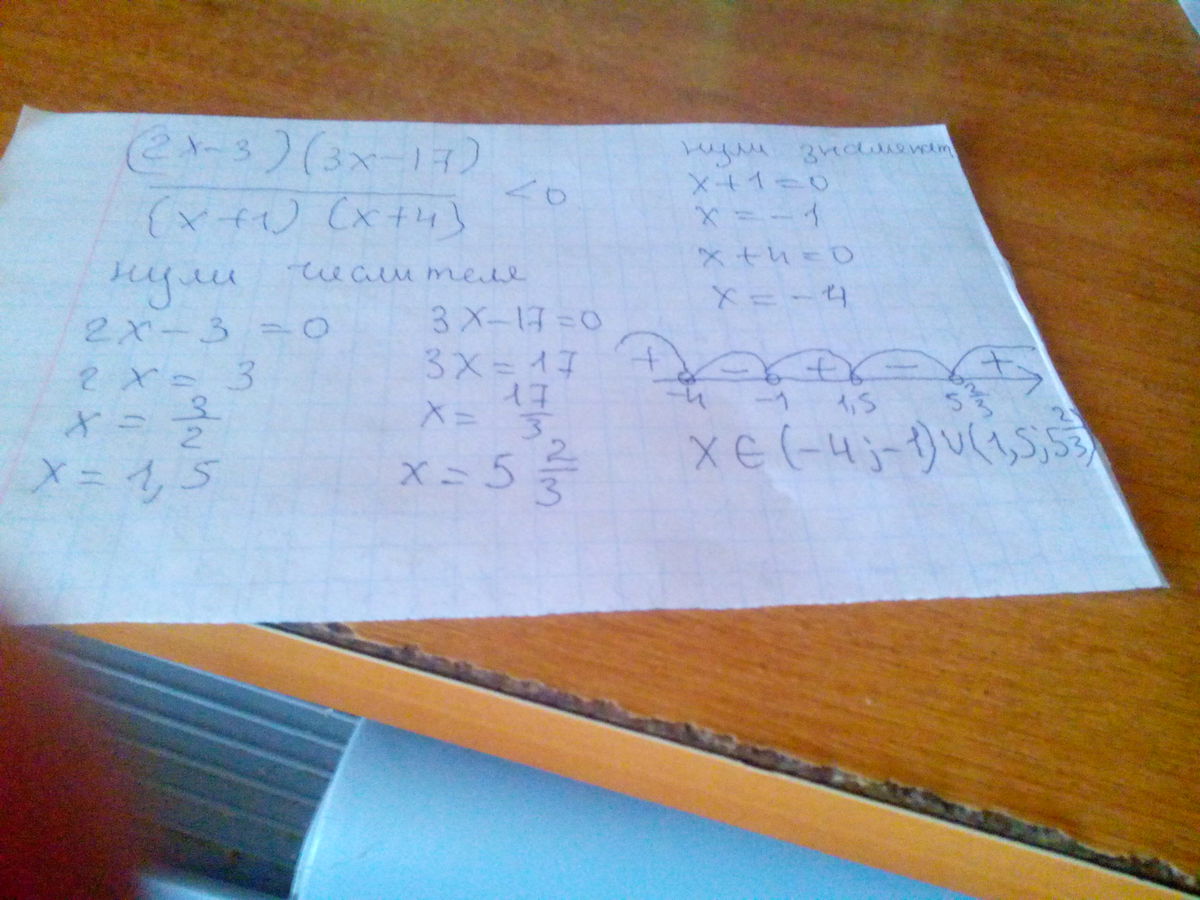 (2x-3)(3x-17)
(x+1) (x+4) <0
нули числителя
2x-3=0
2x=3
x=3/2
x=1,5
3x-17=0
3x=17
x=17/3
x=5 2/3
нули знаменат
x+1=0
x=-1
x+4=0
x=-4
+ - + - +
-4 -1 1,5 5 2/3
X∈(-4;-1)∪(1,5;5 2/3)